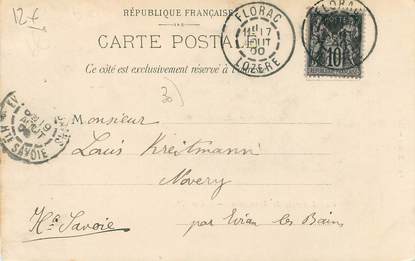 12€
RÉPUBLIQUE FRANÇAISE
CARTE POSTALE
Ce côté est exclusivement réservé à l'
FLORAC
17
AOUT
00
LOZERE
POSTES
10
REPUBLIQUE FRANÇAISE
FLORAC
30
SAVOIE
19
Monsieur
Louis Kreitmann
Novery
Hte Savoie par Evian les Bains